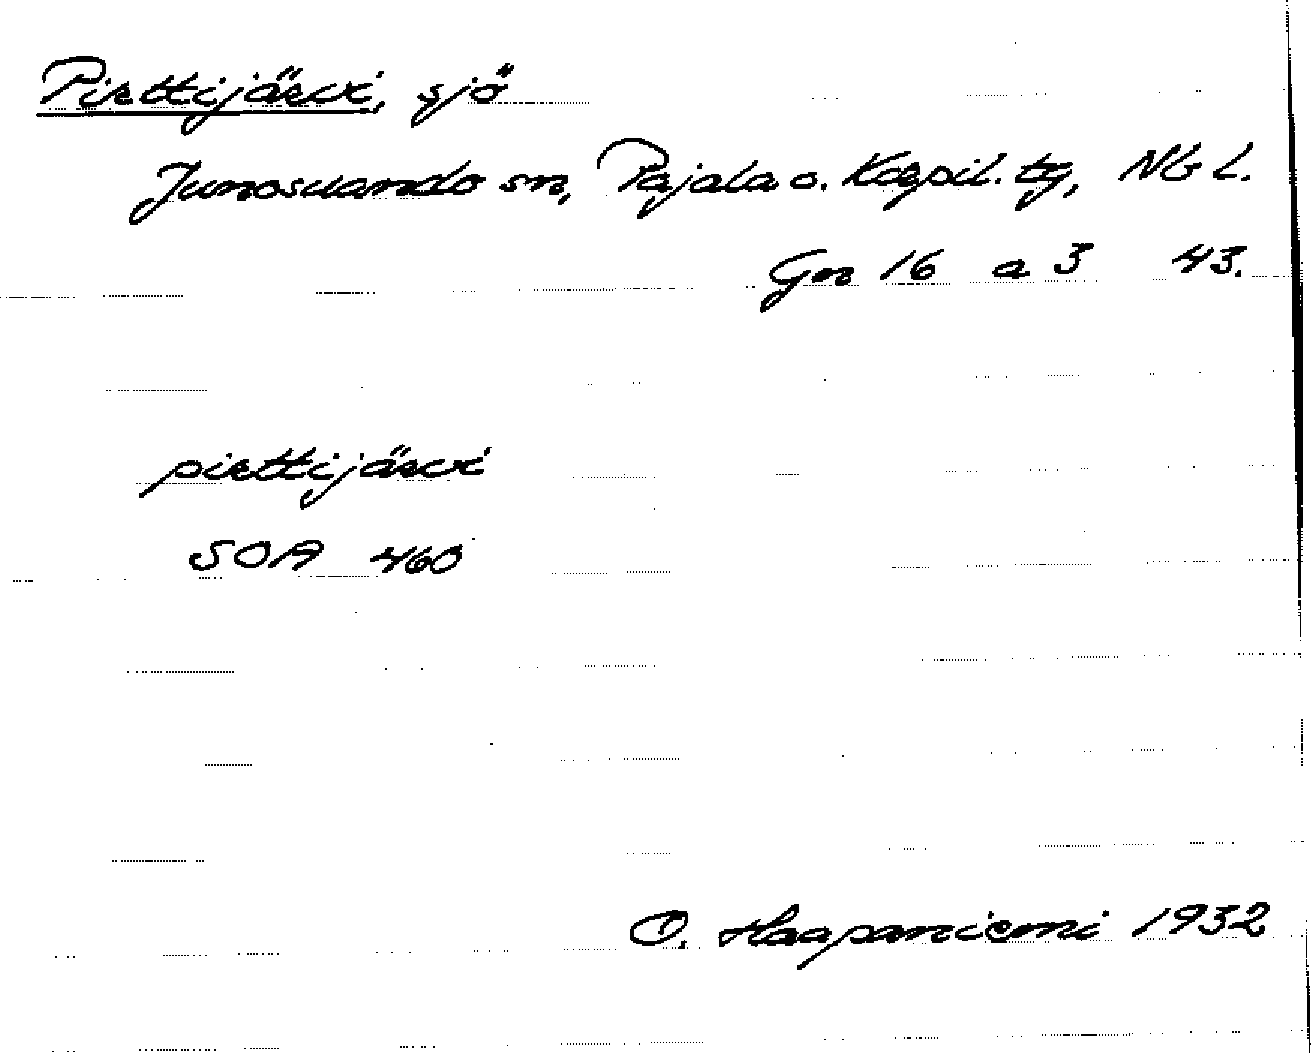 Pirttijärvi, sjö
Junosuando sn, Pajala o. Korpil. tg, Nb l.
Gn 16 a 3 43.
pirttijärvi
SOA 460
O. Haapaniemi 1932